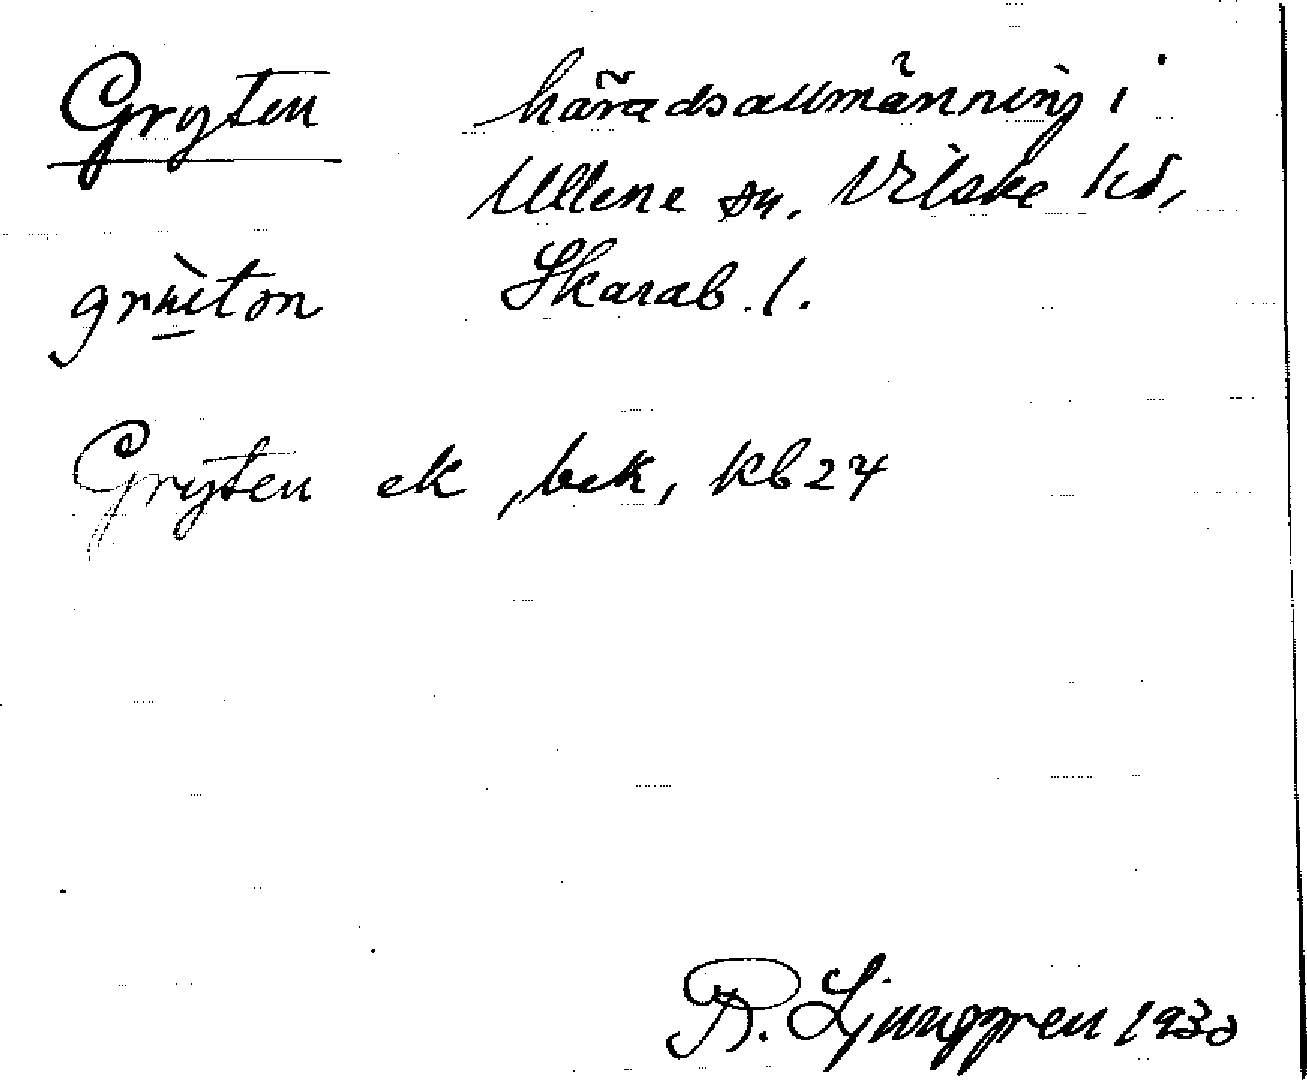 Gryten häradsallmänning i
Ullene sn. Vilske hd,
Skarab. l.
Gryten ek, bek, kb 27
R. Ljunggren 1930